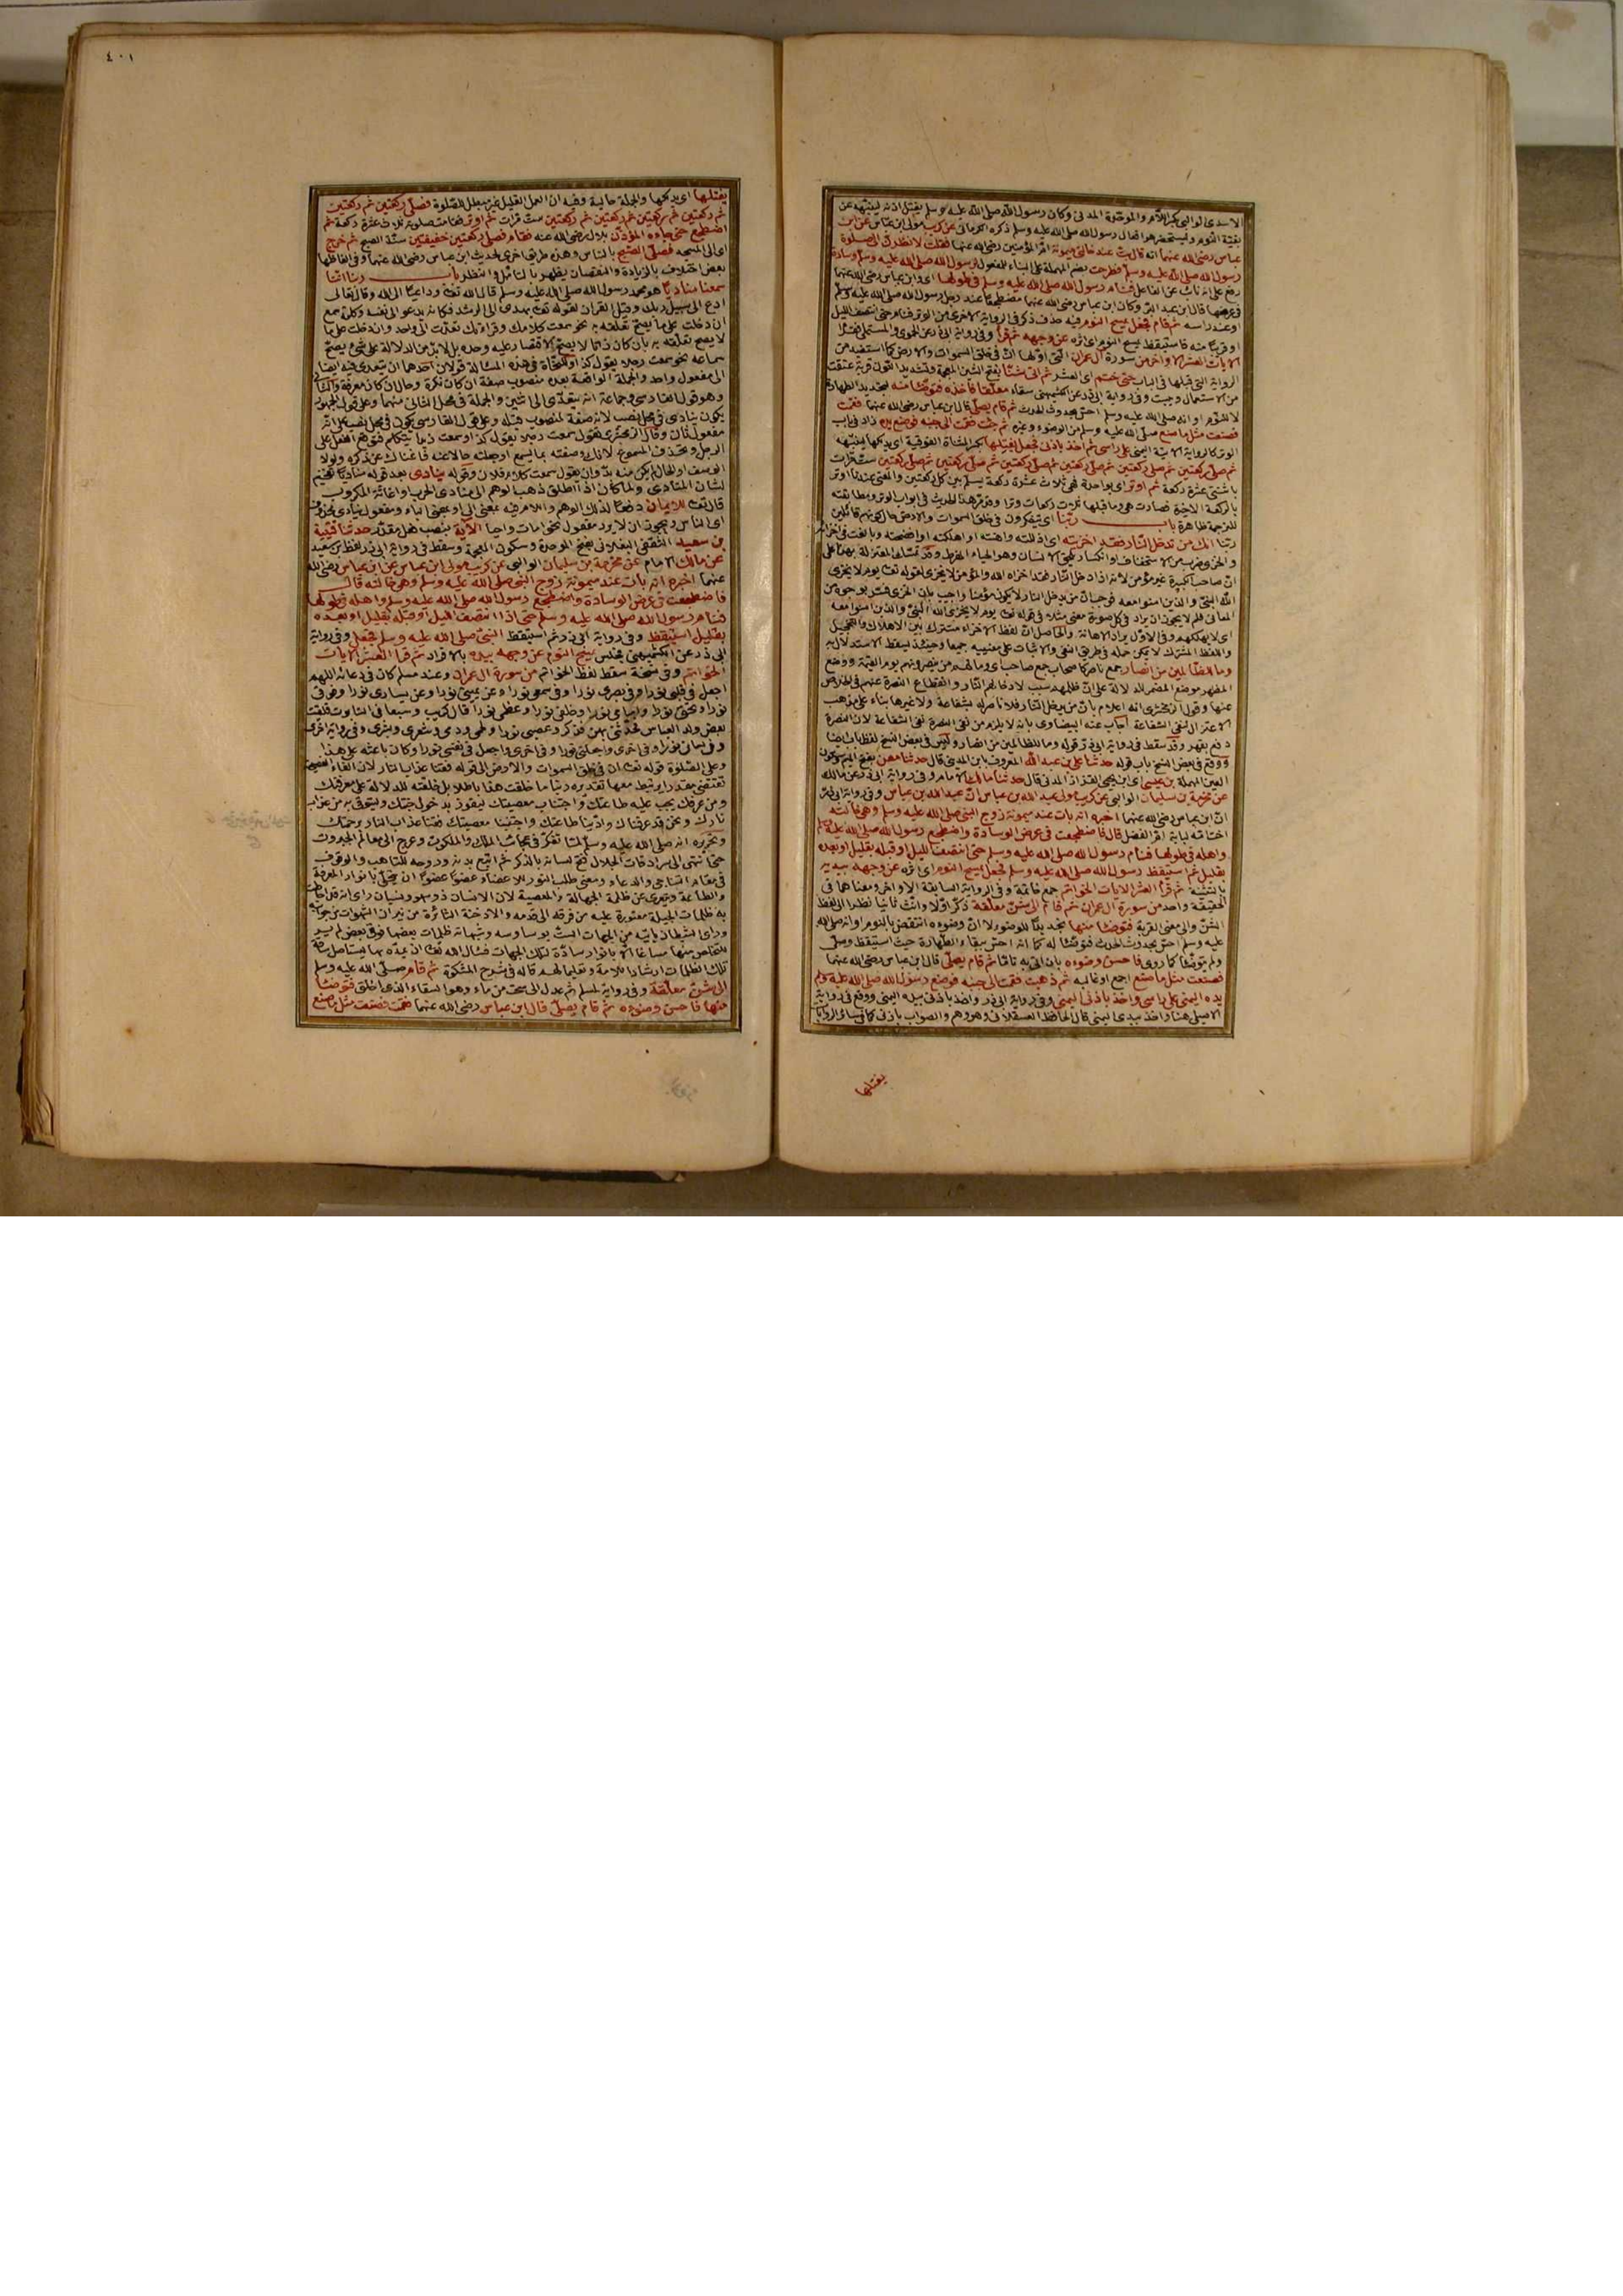 الاسدى الوالبى بكسر اللام والموحدة المدنى وكان رسول الله صلى الله عليه وسلم يفتل اذنه لينبهه عن
بقية النوم وليستحضر هو افعال رسول الله صلى الله عليه وسلم ذكره الكرمانى عن كريب مولى ابن عباس عن ابن
عباس رضى الله عنهما انه قال بت عند خالتى ميمونة ام المؤمنين رضى الله عنها فقلت لانظرن الى صلوة
رسول الله صلى الله عليه وسلم فطرحت بضم المهملة على البناء للمفعول لرسول الله صلى الله عليه وسلم وسادة
رفع على انه نائب عن الفاعل فنام رسول الله صلى الله عليه وسلم فى طولها اى وابن عباس رضى الله عنهما
فى عرضها قال ابن عبد البر وكان ابن عباس رضى الله عنهما مضطجعا عند رجل رسول الله صلى الله عليه وسلم
او عند راسه ثم قام فجعل يمسح النوم فيه حذف ذكر فى الرواية الاخرى من الوتر فنام حتى انتصف الليل
او قريبا منه فاستيقظ يمسح النوم اى اثره عن وجهه ثم قرأ وفى رواية ابى ذر عن الحموى والمستملى فقرأ
الايات العشر الاواخر من سورة ال عمران التى اولها ان فى خلق السموات والارض كما استفيد من
الرواية التى قبلها فى الباب حتى ختم اى العشر ثم اتى شنا بفتح الشين المعجمة وتشديد النون قربة عتقت
من الاستعمال وجيت وفى رواية ابى ذر عن الكشميهنى سقاء معلقا فاخذه فتوضأ منه لتجديد الطهارة
لا للنوم او انه صلى الله عليه وسلم احس بحدوث الحدث ثم قام يصلى قال ابن عباس رضى الله عنهما فقمت
فصنعت مثل ما صنع صلى الله عليه وسلم من الوضوء وغيره ثم جئت فقمت الى جنبه فوضع يده زاد فى باب
الوتر كالرواية الاتية اليمنى على راسى ثم اخذ باذنى فجعل يفتلها بكسر المثناة الفوقية اى يدلكها لينبهه
ثم صلى ركعتين ثم صلى ركعتين ثم صلى ركعتين ثم صلى ركعتين ثم صلى ركعتين ثم صلى ركعتين ست مرات
باثنتى عشرة ركعة ثم اوتر اى بواحدة فهى ثلاث عشرة ركعة يسلم بين كل ركعتين والمعنى عندنا اوتر
بالركعة الاخيرة فصارت هى وما قبلها ثلاث ركعات وترا وقد مر هذا الحديث فى ابواب الوتر ومطابقته
للترجمة ظاهرة باب ربنا اى يتفكرون فى خلق السموات والارض حال كونهم قائلين
ربنا انك من تدخل النار فقد اخزيته اى اذللته واهنته او اهلكته او افضحته وبالغت فى اخزائه
والخزى ضرب من الاستخفاف او انكسار يلحق الانسان وهو الحياء المفرط وقد تمسك المعتزلة بهذا على
ان صاحب الكبيرة غير مؤمن لانه اذا دخل النار فقد اخزاه الله والمؤمن لا يخزى لقوله تعا يوم لا يخزى
الله النبى والذين امنوا معه فوجب ان من يدخل النار لا يكون مؤمنا واجيب بان الخزى فسر بوجوه من
المعانى فلم لا يجوز ان يراد فى كل صورة معنى مثلا فى قوله تعا يوم لا يخزى الله النبى والذين امنوا معه
اى لا يهلكهم وفى الاول يراد الاهانة والحاصل ان لفظ الاخزاء مشترك بين الاهلاك والتخجيل
واللفظ المشترك لا يمكن حمله فى طريق النفى والاثبات على معنييه جميعا وحينئذ ليسقط الاستدلال به
وما للظالمين من انصار جمع ناصر كاصحاب جمع صاحب اى وما لهم من ينصرونهم يوم القيمة ووضع
المظهر موضع المضمر للدلالة على ان ظلمهم سبب لادخالهم النار وانقطاع النصرة عنهم فى الخلاص
عنها وقول الزمخشرى انه اعلام بان من يدخل النار فلا ناصر له بشفاعة ولا غيرها بناء على مذهب
الاعتزال لنفى الشفاعة اجاب عنه البيضاوى بانه لا يلزم من نفى النصرة نفى الشفاعة لان النصرة
دفع بقهر وقد سقط فى رواية ابى ذر قوله وما للظالمين من انصار وليس فى بعض النسخ لفظ باب ايضا
ووقع فى بعض النسخ باب قوله حدثنا على بن عبد الله المعروف بابن المدينى قال حدثنا معن بفتح الميم وسكون
العين المهملة بن عيسى اى ابن يحيى القزاز المدنى قال حدثنا مالك الامام وفى رواية ابى ذر عن مالك
عن مخرمة بن سليمان الوالبى عن كريب مولى عبد الله بن عباس ان عبد الله بن عباس وفى رواية ابى ذر
ان ابن عباس رضى الله عنهما اخبره انه بات عند ميمونة زوج النبى صلى الله عليه وسلم وهى خالته
اخت امه لبابة ام الفضل قال فاضطجعت فى عرض الوسادة واضطجع رسول الله صلى الله عليه وسلم
واهله فى طولها فنام رسول الله صلى الله عليه وسلم حتى انتصف الليل او قبله بقليل او بعده
بقليل ثم استيقظ رسول الله صلى الله عليه وسلم فجعل يمسح النوم اى اثره عن وجهه بيديه
بالتثنية ثم قرأ العشر الايات الخواتم جمع خاتمة وفى الرواية السابقة الاواخر ومعناهما فى
الحقيقة واحد من سورة ال عمران ثم قام الى شن معلقة ذكر اولا وانث ثانيا نظرا الى لفظ
الشن والى معنى القربة فتوضأ منها تجديدا للوضوء لا ان وضوءه انتقض بالنوم او انه صلى الله
عليه وسلم احس بحدوث الحدث فتوضأ له كما انه احس ببقاء الطهارة حيث استيقظ وصلى
ولم يتوضأ كما روى فاحسن وضوءه بان اتى به تاما ثم قام يصلى قال ابن عباس رضى الله عنهما
فصنعت مثل ما صنع اجمع او غالبه ثم ذهبت فقمت الى جنبه فوضع رسول الله صلى الله عليه وسلم
يده اليمنى على راسى واخذ باذنى اليمنى وفى رواية ابى ذر واخذ باذنى بيده اليمنى ووقع فى رواية
الاصيلى هنا واخذ بيدى اليمنى قال الحافظ العسقلانى وهو وهم والصواب باذنى كما فى سائر الروايات
يفتلها
٤٠١
يفتلها اى يدلكها والجملة حالية وفيه ان العمل القليل غير مبطل للصلوة فصلى ركعتين ثم ركعتين
ثم ركعتين ثم ركعتين ثم ركعتين ثم ركعتين ست مرات ثم اوتر فتمامت صلوته ثلاث عشرة ركعة ثم
اضطجع حتى جاءه المؤذن بلال رضى الله عنه فقام فصلى ركعتين خفيفتين سنة الصبح ثم خرج
اى الى المسجد فصلى الصبح بالناس وهذه طريق اخرى لحديث ابن عباس رضى الله عنهما وفى الفاظها
بعض اختلاف بالزيادة والنقصان يظهر بالتامل والنظر باب ربنا اننا
سمعنا مناديا هو محمد رسول الله صلى الله عليه وسلم قال الله تعا وداعيا الى الله وقال تعالى
ادع الى سبيل ربك وقيل القران لقوله تعا يهدى الى الرشد فكانه يدعو الى نفسه وكلمة سمع
ان دخلت على ما يصح تعلقه به نحو سمعت كلامك وقراءتك تعدت الى واحد وان دخلت على ما
لا يصح تعلقه به بان كان ذاتا لا يصح الاقتصار عليه وحده بل لابد من الدلالة على شئ يصح
سماعه نحو سمعت رجلا يقول كذا وللنحاة فى هذه المسالة قولان احدهما ان يتعدى فيه ايضا
الى مفعول واحد والجملة الواقعة بعده منصوب صفة ان كان نكرة وحال ان كان معرفة والثانى
وهو قول الفارسى وجماعة انه يتعدى الى اثنين والجملة فى محل الثانى منهما وعلى قول الجمهور
يكون ينادى فى محل نصب لانه صفة لمنصوب قبله وعلى قول الفارسى يكون فى محل نصب على انه
مفعول ثان وقال الزمخشرى تقول سمعت رجلا يقول كذا وسمعت زيدا يتكلم فتوقع الفعل على
الرجل وتحذف المسموع لانك وصفته بما يسمع او جعلته حالا عنه فاغناك عن ذكره ولولا
الوصف او الحال لم يكن منه بد وان يقول سمعت كلام فلان وقوله ينادى بعد قوله مناديا تفخيم
لشان المنادى ولما كان اذا اطلق ذهب الوهم الى منادى الحرب او اغاثة المكروب
قال تعا للايمان دفعا لذلك الوهم واللام فيه بمعنى الى او بمعنى الباء ومفعول ينادى محذوف
اى الناس ويجوز ان لا يراد مفعول نحو امات واحيا الاية بنصب بفعل مقدر حدثنا قتيبة
بن سعيد الثقفى البغلانى بفتح الموحدة وسكون المعجمة وسقط فى رواية ابى ذر لفظ بن سعيد
عن مالك الامام عن مخرمة بن سليمان الوالبى عن كريب مولى ابن عباس عن ابن عباس رضى الله
عنهما اخبره انه بات عند ميمونة زوج النبى صلى الله عليه وسلم وهى خالته قال
فاضطجعت فى عرض الوسادة واضطجع رسول الله صلى الله عليه وسلم واهله فى طولها
فنام رسول الله صلى الله عليه وسلم حتى اذا انتصف الليل او قبله بقليل او بعده
بقليل استيقظ وفى رواية ابى ذر ثم استيقظ النبى صلى الله عليه وسلم فجعل وفى رواية
ابى ذر عن الكشميهنى فجلس يمسح النوم عن وجهه بيده بالافراد ثم قرأ العشر الايات
الخواتم وفى نسخة سقط لفظ الخواتم من سورة ال عمران وعند مسلم كان فى دعائه اللهم
اجعل فى قلبى نورا وفى بصرى نورا وفى سمعى نورا وعن يمينى نورا وعن يسارى نورا وفوقى
نورا وتحتى نورا وامامى نورا وخلفى نورا وعظم لى نورا قال كريب وسبعا فى التابوت فلقيت
بعض ولد العباس فحدثنى بهن فذكر وعصبى نورا ولحمى ودمى وشعرى وبشرى وفى رواية اخرى
وفى لسانى نورا وفى اخرى واجعلنى نورا وفى اخرى واجعل فى نفسى نورا وكان باعثه على هذا
وعلى الصلوة قوله تعا ان فى خلق السموات والارض الى قوله فقنا عذاب النار لان الفاء الفصيحة
تقتضى مقدرا يرتبط معها تقديره ربنا ما خلقت هذا باطلا بل خلقته للدلالة على معرفتك
ومن عرفك يجب عليه طاعتك واجتناب معصيتك ليفوز بدخول جنتك ويتوقى به من عذاب
نارك ونحن قد عرفناك وادينا طاعتك واجتنبنا معصيتك فقنا عذاب النار برحمتك
وتحريره انه صلى الله عليه وسلم لما تفكر فى عجائب الملك والملكوت وعرج الى معالم الجبروت
حتى انتهى الى سرادقات الجلال فتح لسانه بالذكر ثم اتبع بدنه وروحه للتاهب والوقوف
فى مقام التناجى والدعاء ومعنى طلب النور للاعضاء عضوا عضوا ان يتحلى بانوار المعرفة
والطاعة ويتعرى عن ظلمة الجهالة والمعصية لان الانسان ذو سهو ونسيان راى انه قد احاطت
به ظلمات الجبلة معتورة عليه من فرقه الى قدمه والادخنة الثائرة من نيران الشهوات من جوانبه
وراى الشيطان ياتيه من الجهات الست بوساوسه وشبهاته ظلمات بعضها فوق بعض لم ير
للتخلص منها مساغا الا بانوار سادة لتلك الجهات فسال الله تعا ان يمده بها ليستاصل شافة
تلك الظلمات ارشادا للامة وتعليما لهم قاله فى شرح المشكوة ثم قام صلى الله عليه وسلم
الى شن معلقة وفى رواية لمسلم ثم عمد الى شجب من ماء وهو السقاء الذى اخلق فتوضأ
منها فاحسن وضوءه ثم قام يصلى قال ابن عباس رضى الله عنهما فقمت فصنعت مثل ما صنع